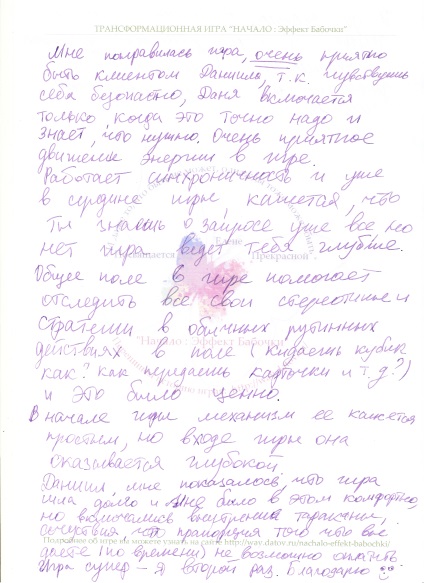 ТРАНСФОРМАЦИОННАЯ ИГРА "НАЧАЛО : Эффект Бабочки"
Мне понравилась игра, очень приятно
быть клиентом Даниила, т.к. чувствуешь
себя безопасно, Даня включается
только, когда это точно надо и
знает, что нужно. Очень приятное
движение энергии в игре.
Работает синхроничность и уже
в середине игры кажется, что
ты знаешь о запросе уже все, но
нет игра ведет тебя глубже.
Елене
посвящается Прекрасной"
Общее поле в игре помогает
отследить все свои стереотипы и
стратегии в обычных рутинных
"Начало : Эффект Бабочки"
действиях в поле (кидаешь кубик
как? как передаешь карточки и т.д?)
и это было ценно.
В начале игры механизм ее кажется
простым, но в ходе игры она
оказывается глубокой.
Даниил, мне показалось, что игра
шла долго и мне было в этом комфортно,
но включались внутренние тараканы,
что того что вы
даете (по времени) не возможно оплатить
Подробнее об игре вы можете узнать на сайте http://www.datov.ru/nachalo-effekt-babochki/
Игра супер – я второй раз. Благодарю